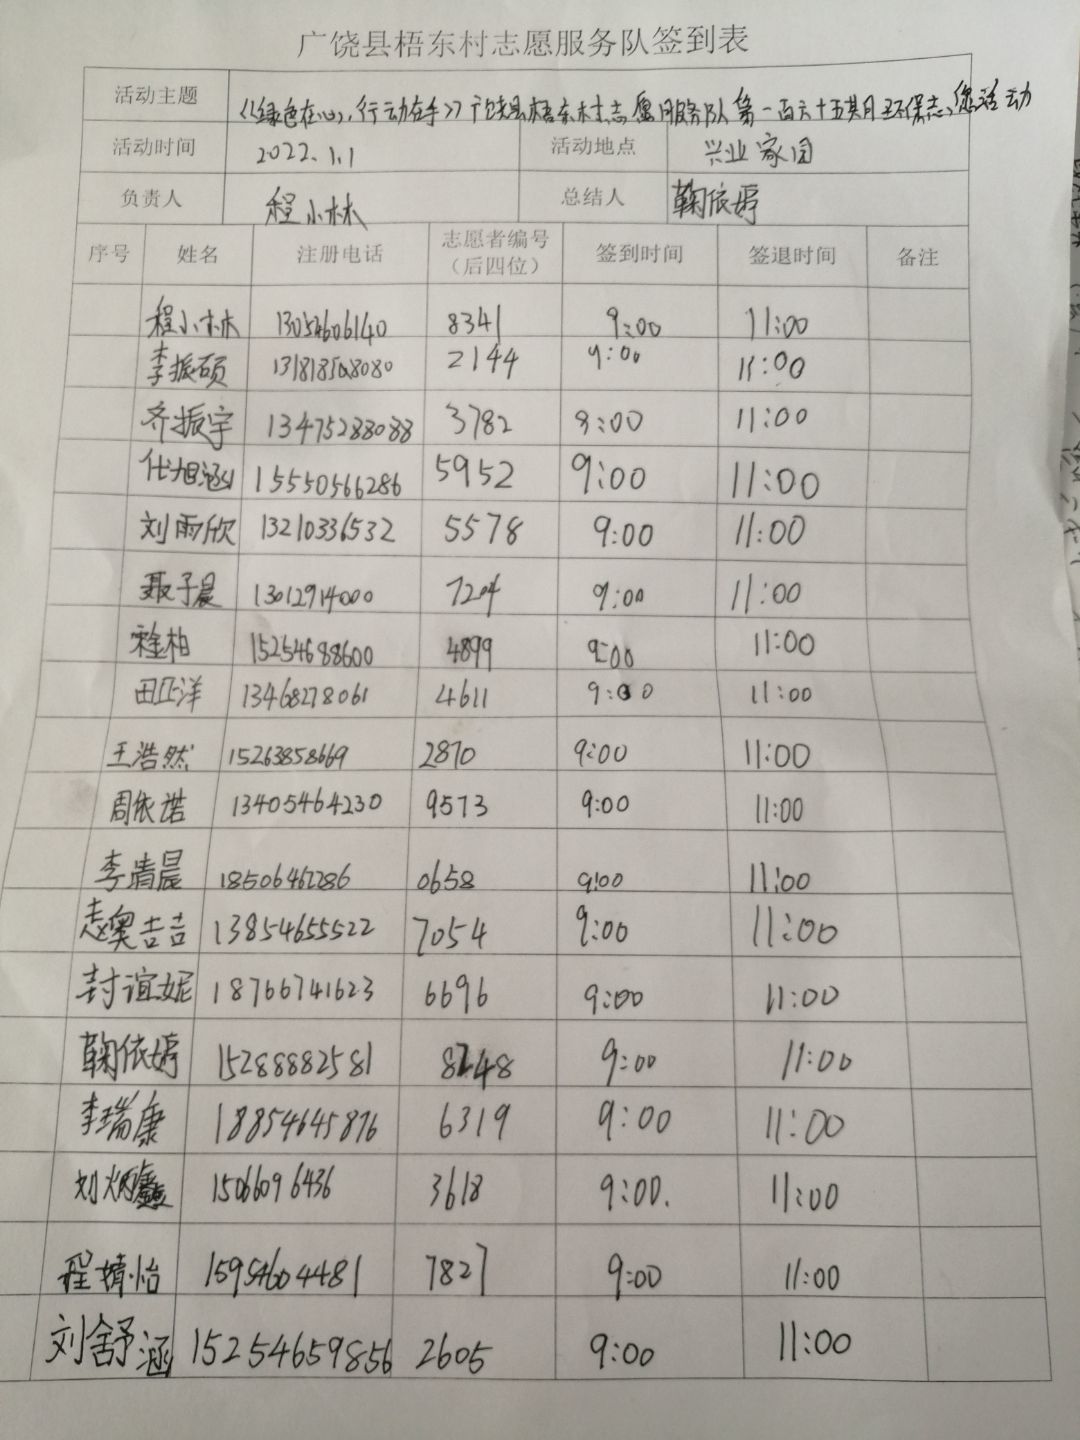 广饶县梧东村志愿服务队签到表
活动主题 《绿色在心,行动在手》广饶县梧东村志愿服务队第一百六十五期月环保志愿活动
活动时间 2022.1.1 活动地点 兴业家园
负责人 程小林 总结人 鞠依婷
序号 姓名 注册电话 志愿者编号(后四位) 签到时间 签退时间 备注
程小林 13054606140 8341 9:00 11:00
李振硕 2144 9:00 11:00
齐振宇 13475288088 3782 9:00 11:00
代旭涵 15550566286 5952 9:00 11:00
刘雨欣 13210336532 5578 9:00 11:00
聂子晨 13012914000 7204 9:00 11:00
15254688600 4899 9:00 11:00
田正洋 13468278061 4611 9:00 11:00
王浩然 15263858669 2870 9:00 11:00
周依诺 13405464230 9573 9:00 11:00
李清晨 18506462286 0658 9:00 11:00
13854655522 7054 9:00 11:00
封谊妮 18766741623 6696 9:00 11:00
鞠依婷 15288882581 8248 9:00 11:00
李瑞康 18854645876 6319 9:00 11:00
15066096436 3618 9:00. 11:00
程婧怡 15954604481 7827 9:00 11:00
刘舒涵 15254659856 2605 9:00 11:00